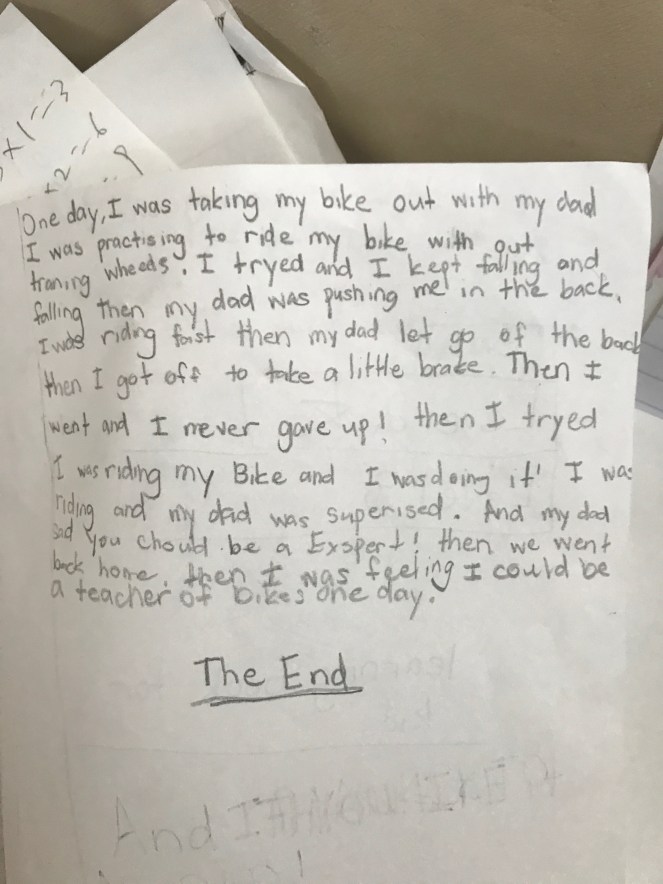 x1=3
x2=6
9
One day, I was taking my bike out with my dad
I was practising to ride my bike with out
traning wheeds. I tryed and I kept falling and
falling then my dad was pushing me in the back.
I was riding fast then my dad let go of the back
then I got off to take a little brake. Then I
went and I never gave up! then I tryed
I was riding my Bike and I was doing it! I was
riding and my dad was superised. And my dad
sad you chould be a Exspert! then we went
back home. then I was feeling I could be
a teacher of bikes one day.
The End
And I